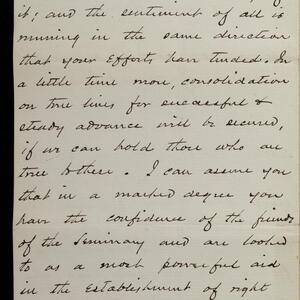 it; and the sentiment of all is
running in the same direction
that your efforts have tended. In
a little time more, consolidation
on true lines for successful &
steady advance will be secured,
if we can hold those who are
true to there. I can assure you
that in a marked degree you
have the confidence of the friends
of the Seminary and are looked
to as a most powerful aid
in the establishment of right